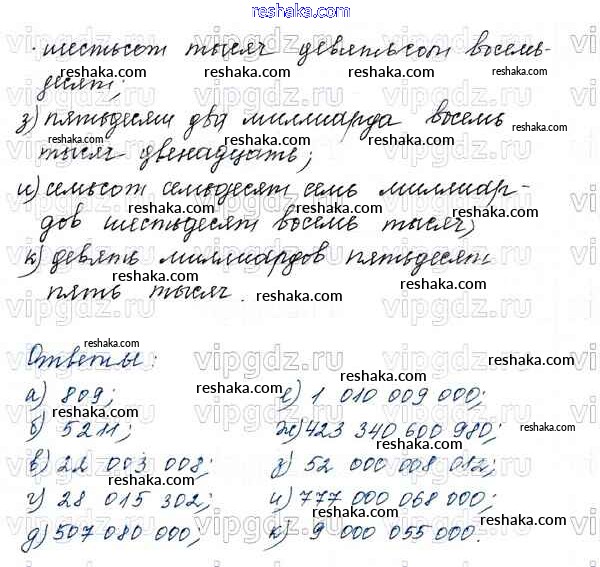 reshaka.com
шестьсот тысяч девятьсот восемь-
десят;
з) пятьдесят два миллиарда восемь
тысяч двенадцать;
и) семьсот семьдесят семь миллиар-
дов шестьдесят восемь тысяч;
к) девять миллиардов пятьдесят
пять тысяч.
Ответы:
а) 809;
б) 5211;
в) 22 003 008;
г) 28 015 302;
д) 507 080 000;
е) 1 010 009 000;
ж) 423 340 600 980;
з) 52 000 008 012;
и) 777 000 068 000;
к) 9 000 055 000.